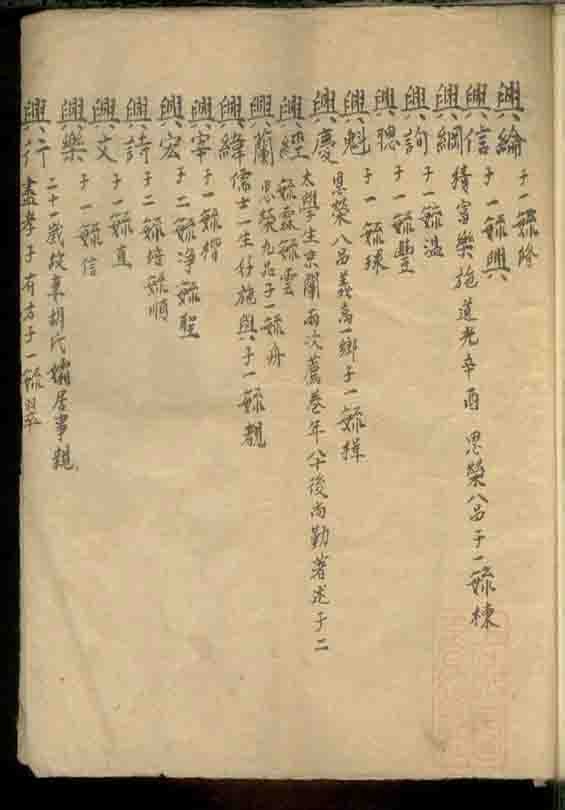 興綸 子一毓隆
興信 子一毓興
興綱 積富樂施道光辛酉 恩榮八品子一毓棟
興詢 子一毓溫
興聰 子一毓豐
興魁 子一毓球
興慶 恩榮八品義高一鄉子一毓揮
興經 太學生京闈兩次薦卷年八十後尚勤著述子二
毓霖毓雲
興蘭 恩榮九品子一毓舟
興緯 儒士一生好施與子一毓親
興宰 子一毓楷
興宏 子二毓淨毓聖
興詩 子二毓培毓順
興文 子一毓直
興樂 子一毓信
二十一歲故妻胡氏孀居事親
興行 盡孝子有方子一毓翠